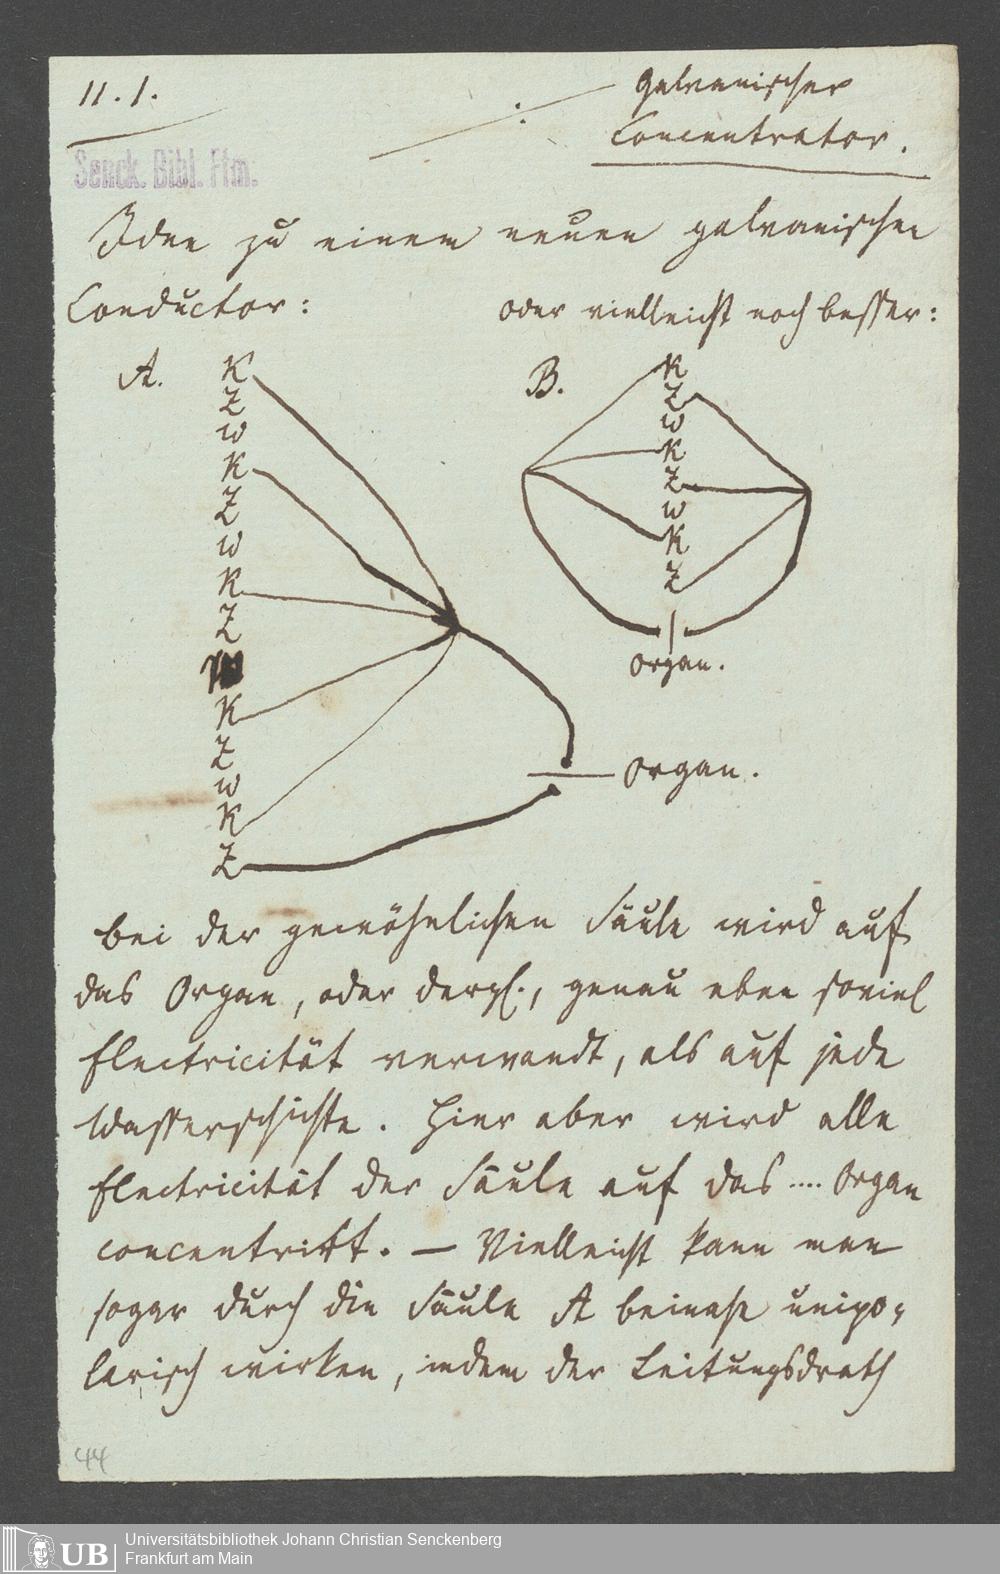 11. 1.
Galvanischer
Concentrator.
Senck. Bibl. Ffm.
Idee zu einem neuen galvanischen
Conductor:
oder vielleicht noch besser:
A.
K
Z
w
K
Z
w
K
Z
W
K
Z
w
K
Z
B.
K
Z
w
K
Z
w
K
Z
Organ.
Organ.
bei der gewöhnlichen Säule wird auf
das Organ, oder dergl., genau eben soviel
Electricität verwandt, als auf jede
Wasserschichte. Hier aber wird alle
Electricität der Säule auf das .... Organ
concentrirt. — Vielleicht kann man
sogar durch die Säule A beinahe unipo-
larisch wirken, indem der Leitungsdrath
44
UB
Universitätsbibliothek Johann Christian Senckenberg
Frankfurt am Main